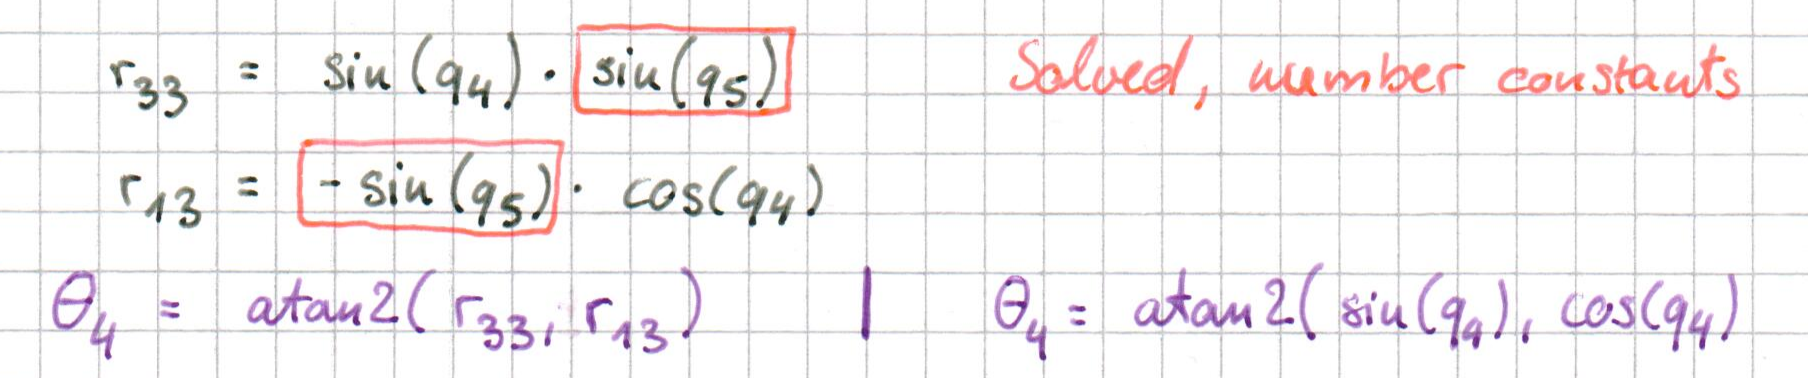 r33 = sin(q4) · sin(q5) Solved, number constants
r13 = -sin(q5) · cos(q4)
θ4 = atan2(r33, r13) | θ4 = atan2(sin(q4), cos(q4)